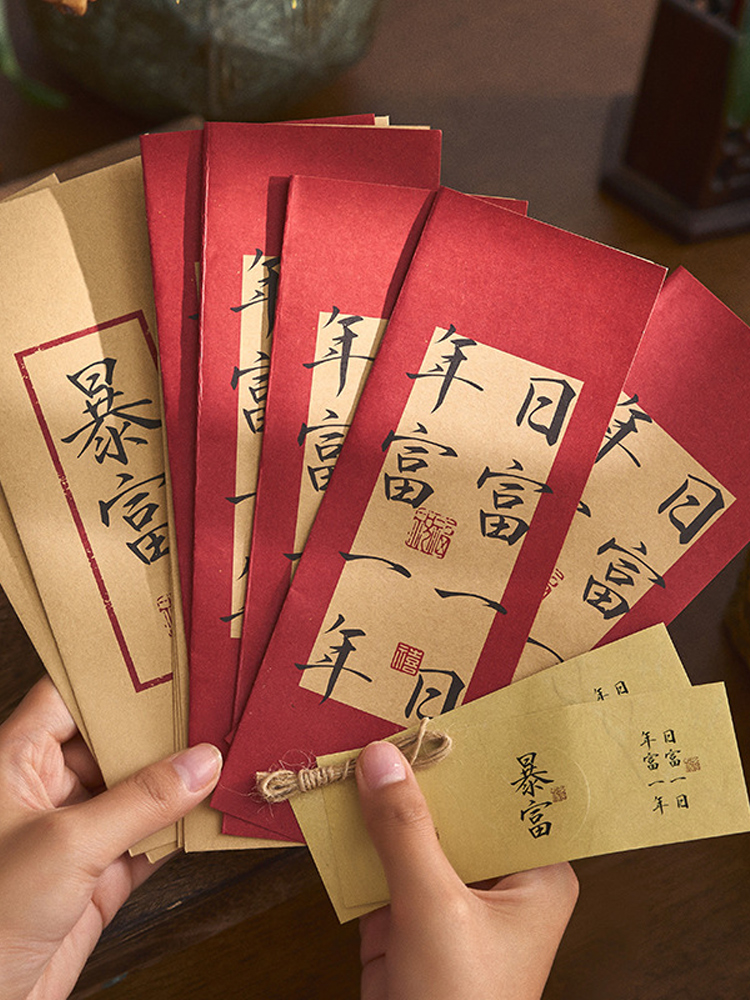 暴富
年富一年
年富一
日富一日
年富一年
禧
日富一
年
日
年
暴富
日富一日
年富一年